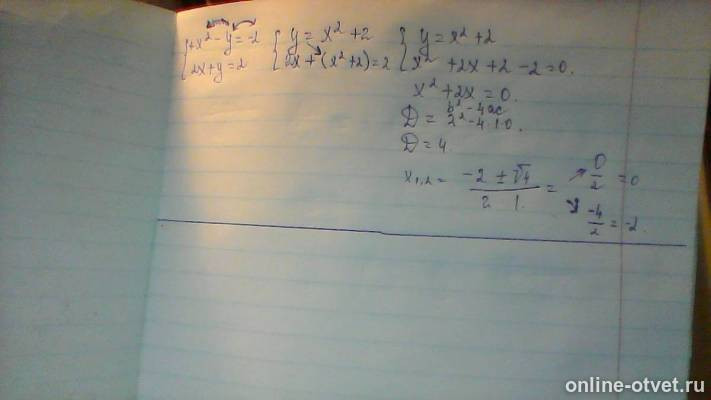 {+x² - y = -2 {y = x² + 2 {y = x² + 2
2x + y = 2 2x + (x² + 2) = 2 x² + 2x + 2 - 2 = 0.
x² + 2x = 0.
D = b² - 4ac
2² - 4·1·0.
D = 4
x₁,₂ = (-2 ± √4)/(2·1) = ↗ 0/2 = 0
↘ -4/2 = -2.
online-otvet.ru